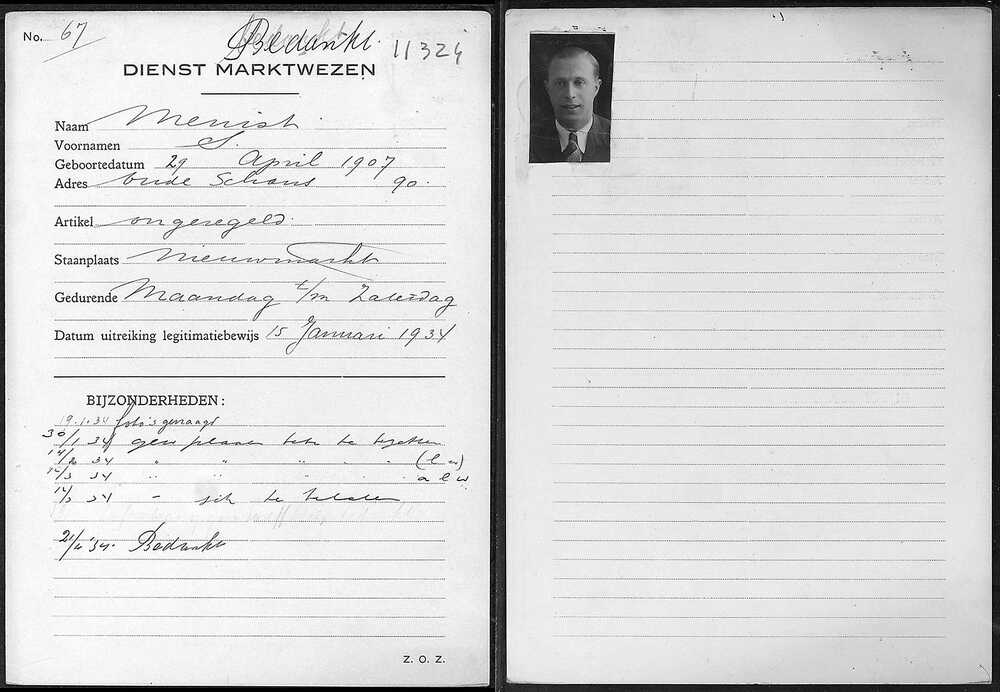 No. 67
Bedankt. 11324
DIENST MARKTWEZEN
Naam Menist
Voornamen S.
Geboortedatum 29 April 1907
Adres Oude Schans 90.
Artikel ongeregeld.
Staanplaats Nieuwmarkt
Gedurende Maandag t/m Zaterdag
Datum uitreiking legitimatiebewijs 15 Januari 1934
BIJZONDERHEDEN:
19.1.34 foto's gevraagd
30/1 34 geen plaats te
14/2 34 " " " " "
12/3 34 " " " " "
12/3 34 - te
21/4 '34. Bedankt
Z. O. Z.